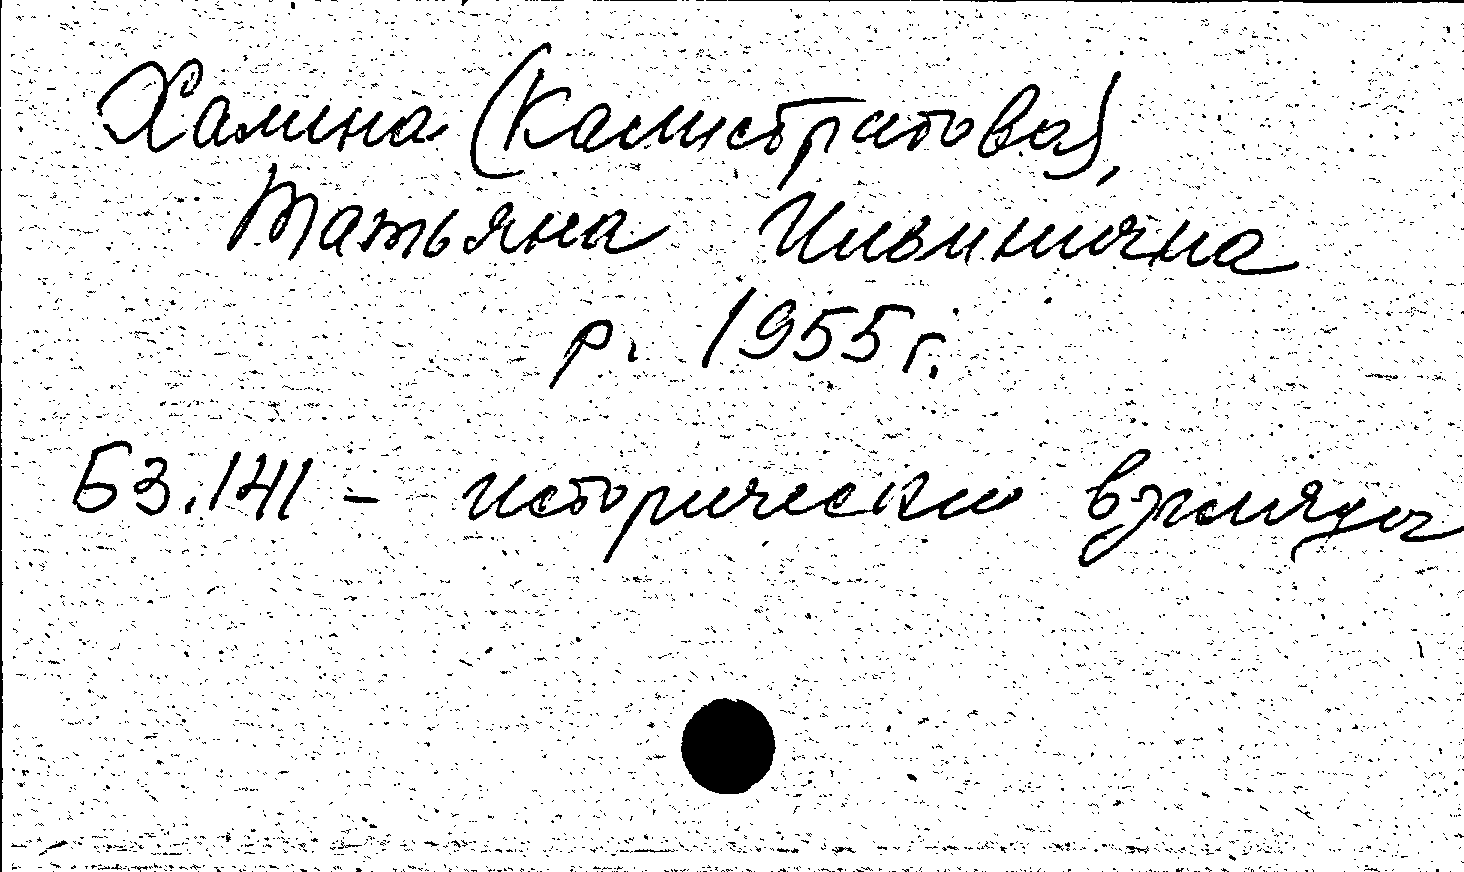 Халина (Калистратова),
Татьяна Ильинична
р. 1955 г.
Б3.141 - исторические взгляды